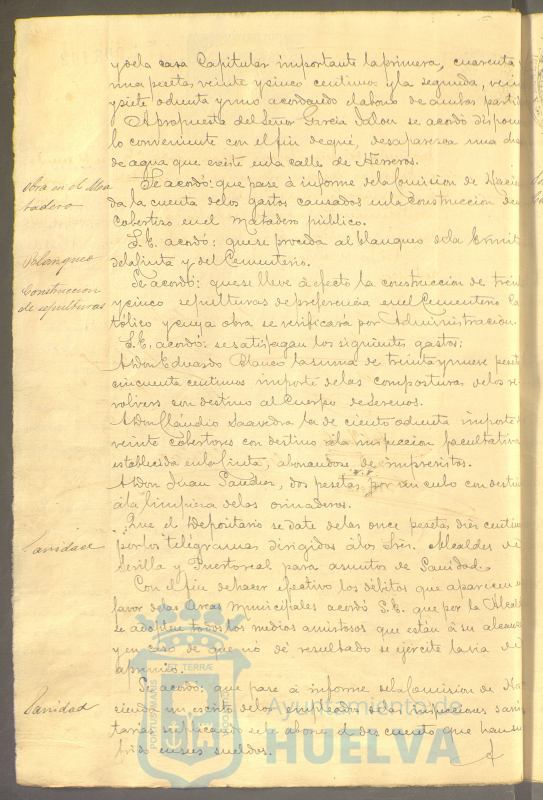 y dela casa Capitular importante la primera, cuarenta y
una pesetas, veinte y cinco centimos y la segunda, vein
y siete ochenta y uno acordando el abono de ambas partid
A propuesta del Señor Garcia Jalon se acordó dispon
lo conveniente con el fin de que, desaparezca una
de agua que existe en la calle de Herreros.
Obra en el Ma
tadero
Se acordó: que pase á informe dela Comision de Hacien
da la cuenta delos gastos causados en la Construccion del
Cobertizo en el Matadero público.
Blanqueo
S.E. acordó: que se proceda al blanqueo dela Ermita
dela Cinta y del Cementerio.
Construccion
de sepulturas
Se acordó: que se lleve á efecto la construccion de trein
y cinco sepulturas de preferencia en el Cementerio Ca
tólico y cuya obra se verificará por Administracion.
S.E. acordó: se satisfagan los siguientes gastos:
A don Eduardo Blanco la suma de treinta y nueve peset
cincuenta centimos importe de las composturas delos re
volvers con destino al Cuerpo de Serenos.
A don Cláudio Saavedra la de ciento ochenta importe de
veinte Cobertores con destino á la inspeccion facultativa
establecida en la Cinta, abonandose de imprevistos.
A don Juan dos pesetas por un cubo con destino
á la limpieza delos orinaderos.
Sanidad
Que el Depositario se date de las once pesetas diez centim
por los telégramas dirigidos álos Sres. Alcaldes de
Sevilla y Puertoreal para asuntos de Sanidad.
Con el fin de hacer efectivo los débitos que aparecen á
favor delas Arcas municipales acordó S.E. que por la Alcald
se adopten todos los medios amistosos que están á su alcance
y en caso de que nó dé resultado se ejercite la via de
apremio.
Sanidad
Se acordó: que pase á informe dela Comision de Ha
cienda un escrito delos empleados delas inspecciones sani
tarias suplicando se les abone el descuento que han su
frido en sus sueldos.
PORTUS MARIS
ET TERRÆ
CUSTODIA
Ayuntamiento de
HUELVA